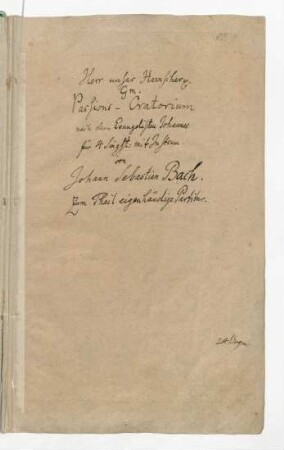 Herr unser Herrscher
Gm.
Passions-Oratorium
nach dem Evangelisten Johannes
für 4 Singst. mit Instrum
von
Johann Sebastian Bach.
Zum Theil eigenhändige Partitur.